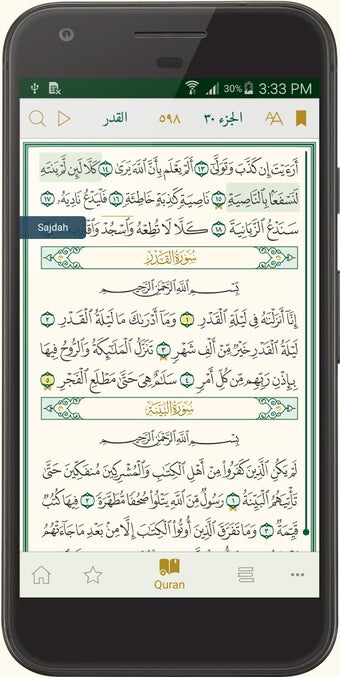 30% 3:33 PM
القدر ٥٩٨ الجزء ٣٠
أَرَءَيْتَ إِن كَذَّبَ وَتَوَلَّىٰٓ ١٣ أَلَمْ يَعْلَم بِأَنَّ ٱللَّهَ يَرَىٰ ١٤ كَلَّا لَئِن لَّمْ يَنتَهِ
لَنَسْفَعًۢا بِٱلنَّاصِيَةِ ١٥ نَاصِيَةٍ كَٰذِبَةٍ خَاطِئَةٍ ١٦ فَلْيَدْعُ نَادِيَهُۥ ١٧
سَنَدْعُ ٱلزَّبَانِيَةَ ١٨ كَلَّا لَا تُطِعْهُ وَٱسْجُدْ
Sajdah
سُورَةُ القَدْرِ
بِسْمِ ٱللَّهِ ٱلرَّحْمَٰنِ ٱلرَّحِيمِ
إِنَّآ أَنزَلْنَٰهُ فِى لَيْلَةِ ٱلْقَدْرِ ١ وَمَآ أَدْرَىٰكَ مَا لَيْلَةُ ٱلْقَدْرِ ٢
لَيْلَةُ ٱلْقَدْرِ خَيْرٌ مِّنْ أَلْفِ شَهْرٍ ٣ تَنَزَّلُ ٱلْمَلَٰٓئِكَةُ وَٱلرُّوحُ فِيهَا
بِإِذْنِ رَبِّهِم مِّن كُلِّ أَمْرٍ ٤ سَلَٰمٌ هِىَ حَتَّىٰ مَطْلَعِ ٱلْفَجْرِ ٥
سُورَةُ البَيِّنَةِ
بِسْمِ ٱللَّهِ ٱلرَّحْمَٰنِ ٱلرَّحِيمِ
لَمْ يَكُنِ ٱلَّذِينَ كَفَرُوا۟ مِنْ أَهْلِ ٱلْكِتَٰبِ وَٱلْمُشْرِكِينَ مُنفَكِّينَ حَتَّىٰ
تَأْتِيَهُمُ ٱلْبَيِّنَةُ ١ رَسُولٌ مِّنَ ٱللَّهِ يَتْلُوا۟ صُحُفًا مُّطَهَّرَةً ٢ فِيهَا كُتُبٌ
قَيِّمَةٌ ٣ وَمَا تَفَرَّقَ ٱلَّذِينَ أُوتُوا۟ ٱلْكِتَٰبَ إِلَّا مِنۢ بَعْدِ مَا جَآءَتْهُمُ
Quran